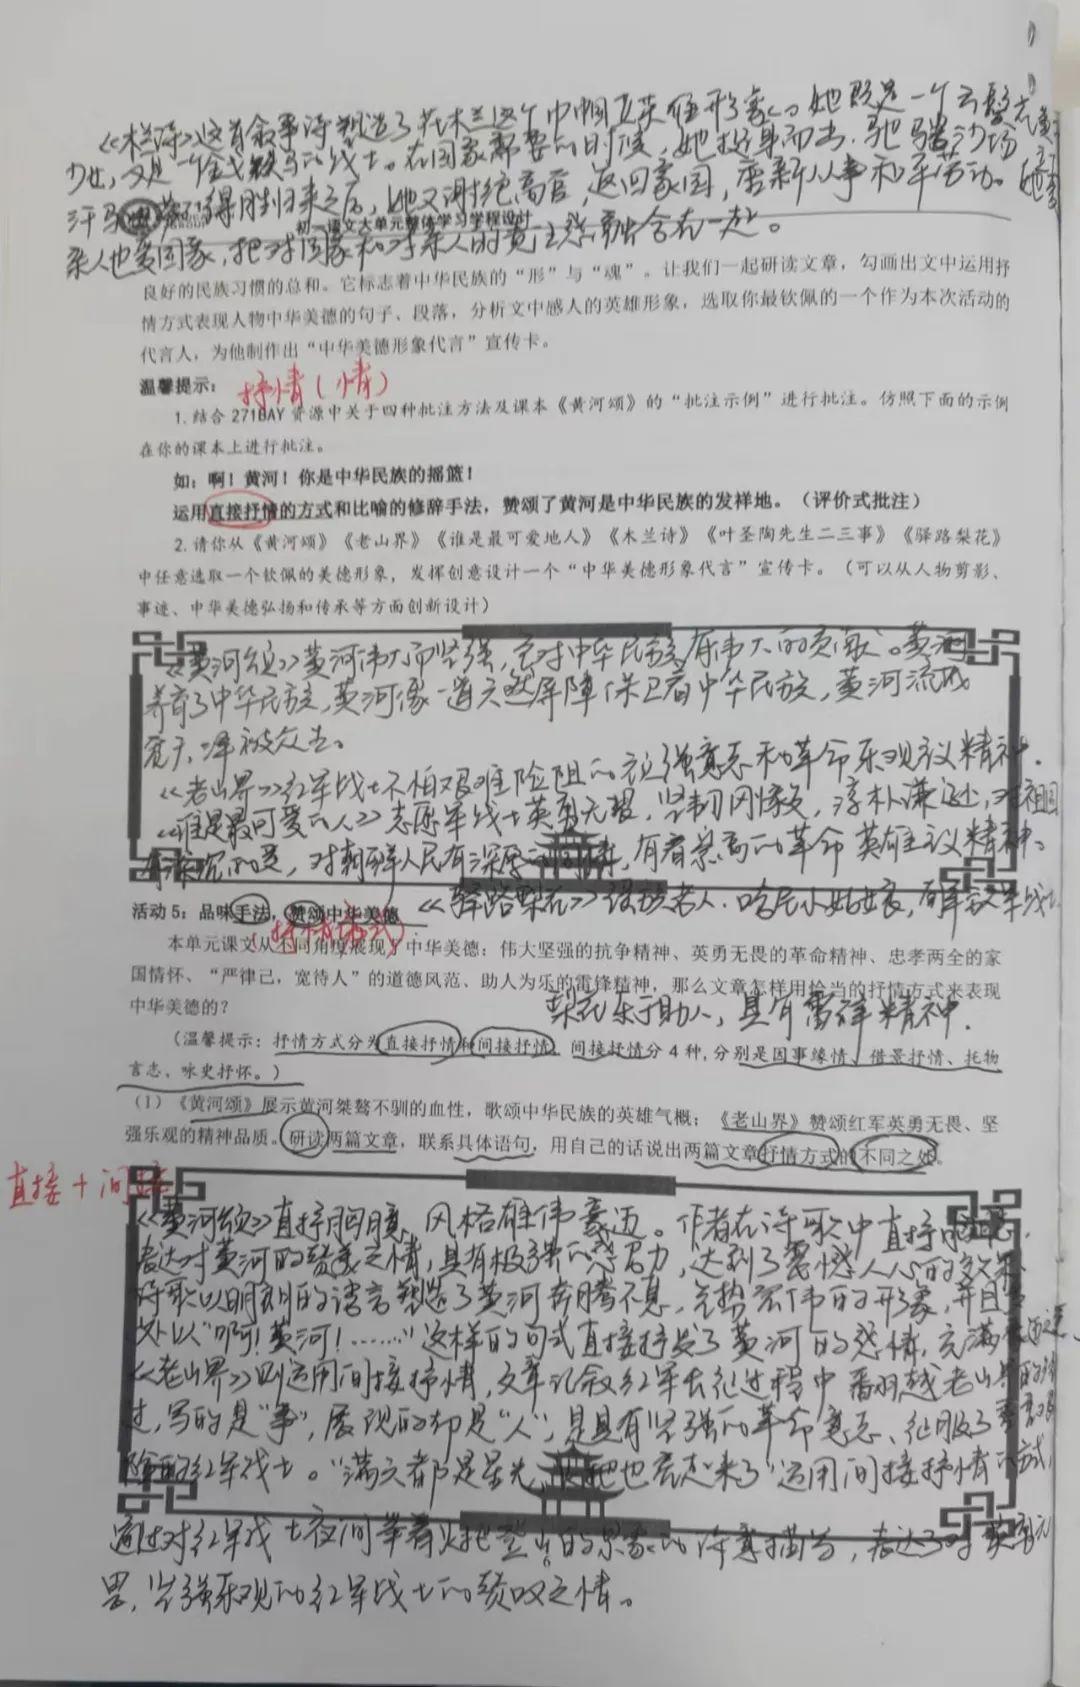 《木兰诗》这首叙事诗塑造了花木兰这个巾帼英雄形象。她既是一个云鬓花黄
少女，又是一个金戈铁马的战士。在国家需要的时候，她挺身而出，驰骋沙场
汗马 得胜归来之后，她又谢绝高官，返回家园，重新从事和平劳动。她
初一语文大单元整体学习学程设计
亲人也爱国家，把对国家和对亲人的责任 融合在一起。
良好的民族习惯的总和。它标志着中华民族的“形”与“魂”。让我们一起研读文章，勾画出文中运用抒
情方式表现人物中华美德的句子、段落，分析文中感人的英雄形象，选取你最钦佩的一个作为本次活动的
代言人，为他制作出“中华美德形象代言”宣传卡。
温馨提示： 抒情（情）
1. 结合 271BAY 资源中关于四种批注方法及课本《黄河颂》的“批注示例”进行批注。仿照下面的示例
在你的课本上进行批注。
如：啊！黄河！你是中华民族的摇篮！
运用直接抒情的方式和比喻的修辞手法，赞颂了黄河是中华民族的发祥地。（评价式批注）
2. 请你从《黄河颂》《老山界》《谁是最可爱地人》《木兰诗》《叶圣陶先生二三事》《驿路梨花》
中任意选取一个钦佩的美德形象，发挥创意设计一个“中华美德形象代言”宣传卡。（可以从人物剪影、
事迹、中华美德弘扬和传承等方面创新设计）
《黄河颂》黄河伟大而坚强，它对中华民族有伟大的贡献。黄河
养育了中华民族，黄河像一道天然屏障保卫着中华民族，黄河流域
宽广，泽被众生。
《老山界》红军战士不怕艰难险阻的 强意志和革命乐观主义精神．
《谁是最可爱的人》志愿军战士英勇无畏，坚韧刚毅，淳朴谦逊，对祖国
有深沉的爱，对朝鲜人民有深厚的同情，有着崇高的革命英雄主义精神。
《驿路梨花》瑶族老人．哈尼小姑娘，解放军战士
活动 5：品味手法，赞颂中华美德
（抒情方式）
本单元课文从不同角度展现了中华美德：伟大坚强的抗争精神、英勇无畏的革命精神、忠孝两全的家
国情怀、“严律己，宽待人”的道德风范、助人为乐的雷锋精神，那么文章怎样用恰当的抒情方式来表现
中华美德的？
梨花乐于助人，具有雷锋精神．
（温馨提示：抒情方式分为直接抒情和间接抒情，间接抒情分 4 种，分别是因事缘情、借景抒情、托物
言志、咏史抒怀。）
（1）《黄河颂》展示黄河桀骜不驯的血性，歌颂中华民族的英雄气概；《老山界》赞颂红军英勇无畏、坚
强乐观的精神品质。研读两篇文章，联系具体语句，用自己的话说出两篇文章抒情方式的不同之处。
直接＋间接
《黄河颂》直抒胸臆，风格雄伟豪迈。作者在诗歌中直抒胸臆，
表达对黄河的赞美之情，具有极强的感召力，达到了震憾人心的效果
诗歌以明朗的语言塑造了黄河奔腾不息，气势宏伟的形象，并且
处以“啊！黄河！……”这样的句式直接抒发了黄河的感情，充满
《老山界》则运用间接抒情，文章记叙红军长征过程中翻越老山界的经
过，写的是“事”，展现的却是“人”，是具有坚强的革命意志、征服了
险的红军战士。“满天都是星光，火把也亮起来了”运用间接抒情的方式，
通过对红军战士夜间举着火把登山的景象的诗意描写，表达了对英勇无
畏，坚强乐观的红军战士的赞叹之情。